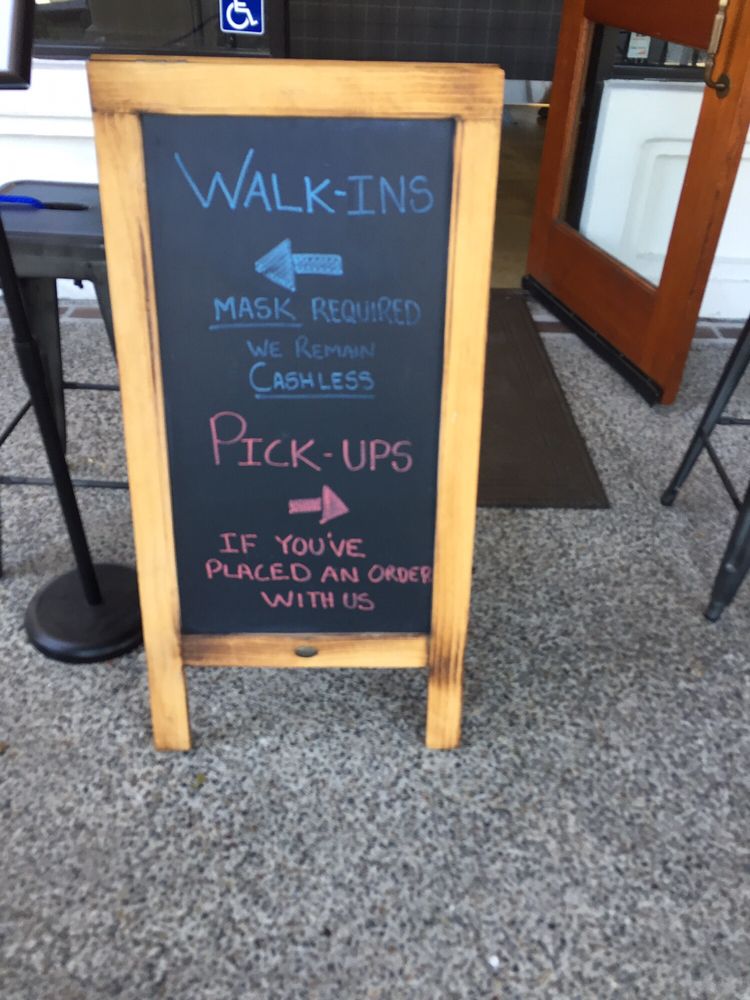 WALK-INS
MASK REQUIRED
WE REMAIN
CASHLESS
PICK-UPS
IF YOU'VE
PLACED AN ORDER
WITH US